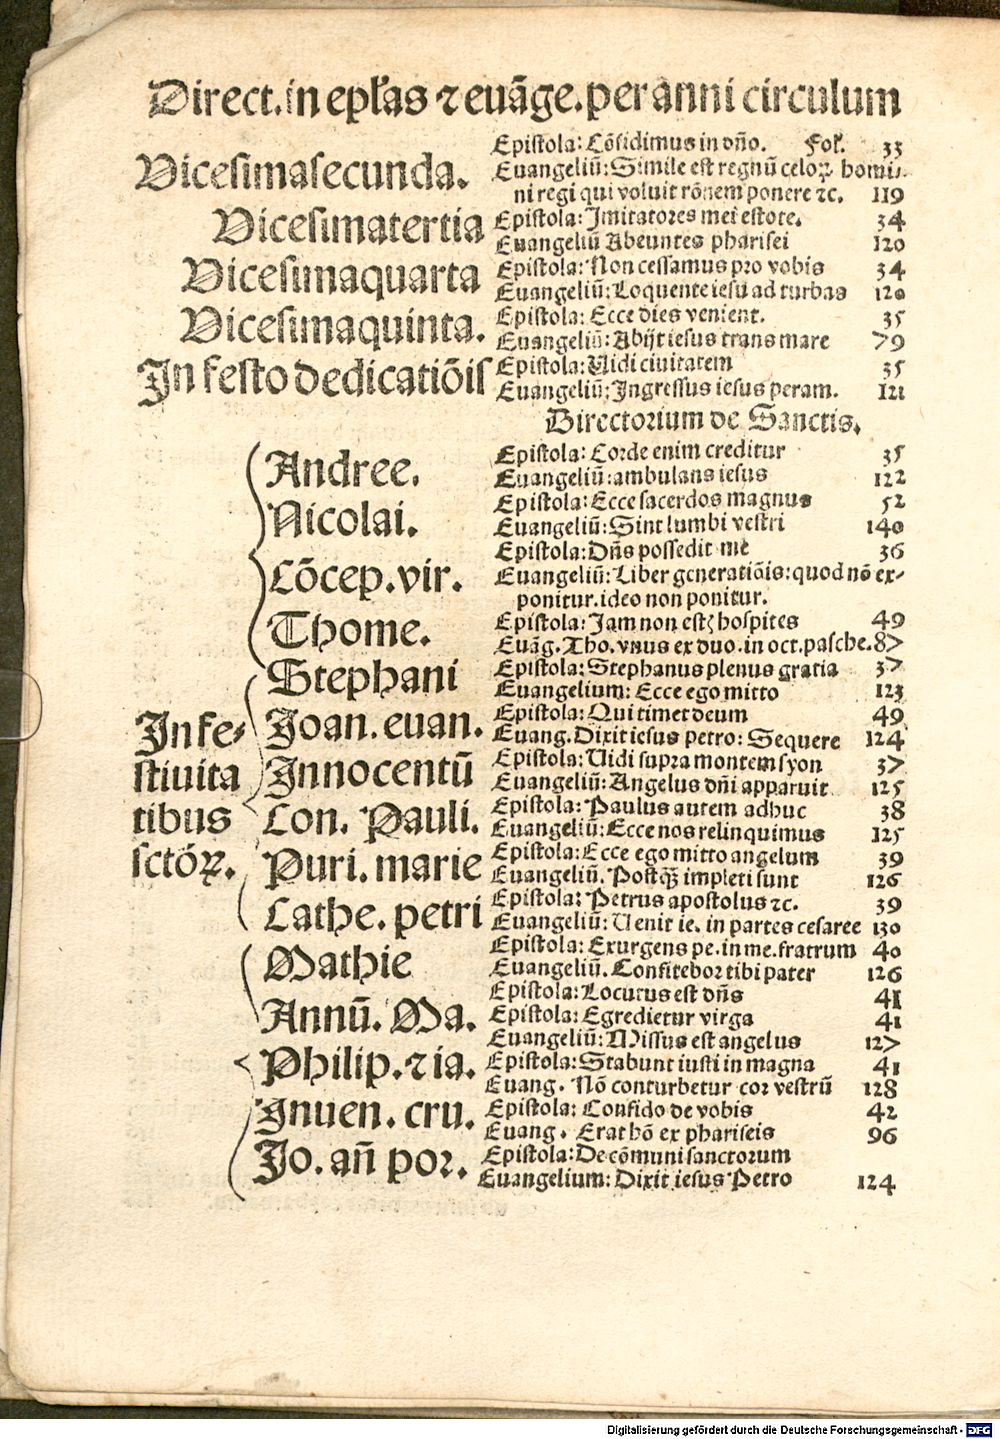 Direct. in epl̃as ⁊ euãge. per anni circulum
Vicesimasecunda.
Epistola: Cõfidimus in dño. Fol. 33
Euangeliũ: Simile est regnũ celoꝝ homi-
ni regi qui voluit rõnem ponere ⁊c. 119
Vicesimatertia
Epistola: Imitatores mei estote. 34
Euangeliũ Abeuntes pharisei 120
Vicesimaquarta
Epistola: Non cessamus pro vobis 34
Euangeliũ: Loquente iesu ad turbas 120
Vicesimaquinta.
Epistola: Ecce dies venient. 35
Euangeliũ: Abijt iesus trans mare 79
In festo dedicatiõis
Epistola: Uidi ciuitatem 35
Euangeliũ: Ingressus iesus peram. 121
Directorium de Sanctis.
In fe-
stiuita
tibus
sctõꝝ.
Andree.
Epistola: Corde enim creditur 35
Euangeliũ: ambulans iesus 122
Nicolai.
Epistola: Ecce sacerdos magnus 52
Euangeliũ: Sint lumbi vestri 140
Cõcep. vir.
Epistola: Dñs possedit me 36
Euangeliũ: Liber generatiõis: quod nõ ex-
ponitur. ideo non ponitur.
Thome.
Epistola: Jam non estꝭ hospites 49
Euãg. Tho. vnus ex duo. in oct. pasche. 87
Stephani
Epistola: Stephanus plenus gratia 37
Euangelium: Ecce ego mitto 123
Joan. euan.
Epistola: Qui timet deum 49
Euang. Dixit iesus petro: Sequere 124
Innocentũ
Epistola: Uidi supra montem syon 37
Euangeliũ: Angelus dñi apparuit 125
Con. Pauli.
Epistola: Paulus autem adhuc 38
Euangeliũ: Ecce nos relinquimus 125
Puri. marie
Epistola: Ecce ego mitto angelum 39
Euangeliũ. Postꝙ̃ impleti sunt 126
Cathe. petri
Epistola: Petrus apostolus ⁊c. 39
Euangeliũ: Uenit ie. in partes cesaree 130
Mathie
Epistola: Exurgens pe. in me. fratrum 40
Euangeliũ. Confitebor tibi pater 126
Annũ. Ma.
Epistola: Locutus est dñs 41
Epistola: Egredietur virga 41
Euangeliũ: Missus est angelus 127
Philip. ⁊ ia.
Epistola: Stabunt iusti in magna 41
Euang. Nõ conturbetur cor vestrũ 128
Inuen. cru.
Epistola: Confido de vobis 42
Euang. Erat hõ ex phariseis 96
Jo. añ por.
Epistola: De cõmuni sanctorum
Euangelium: Dixit iesus Petro 124
Digitalisierung gefördert durch die Deutsche Forschungsgemeinschaft - DFG